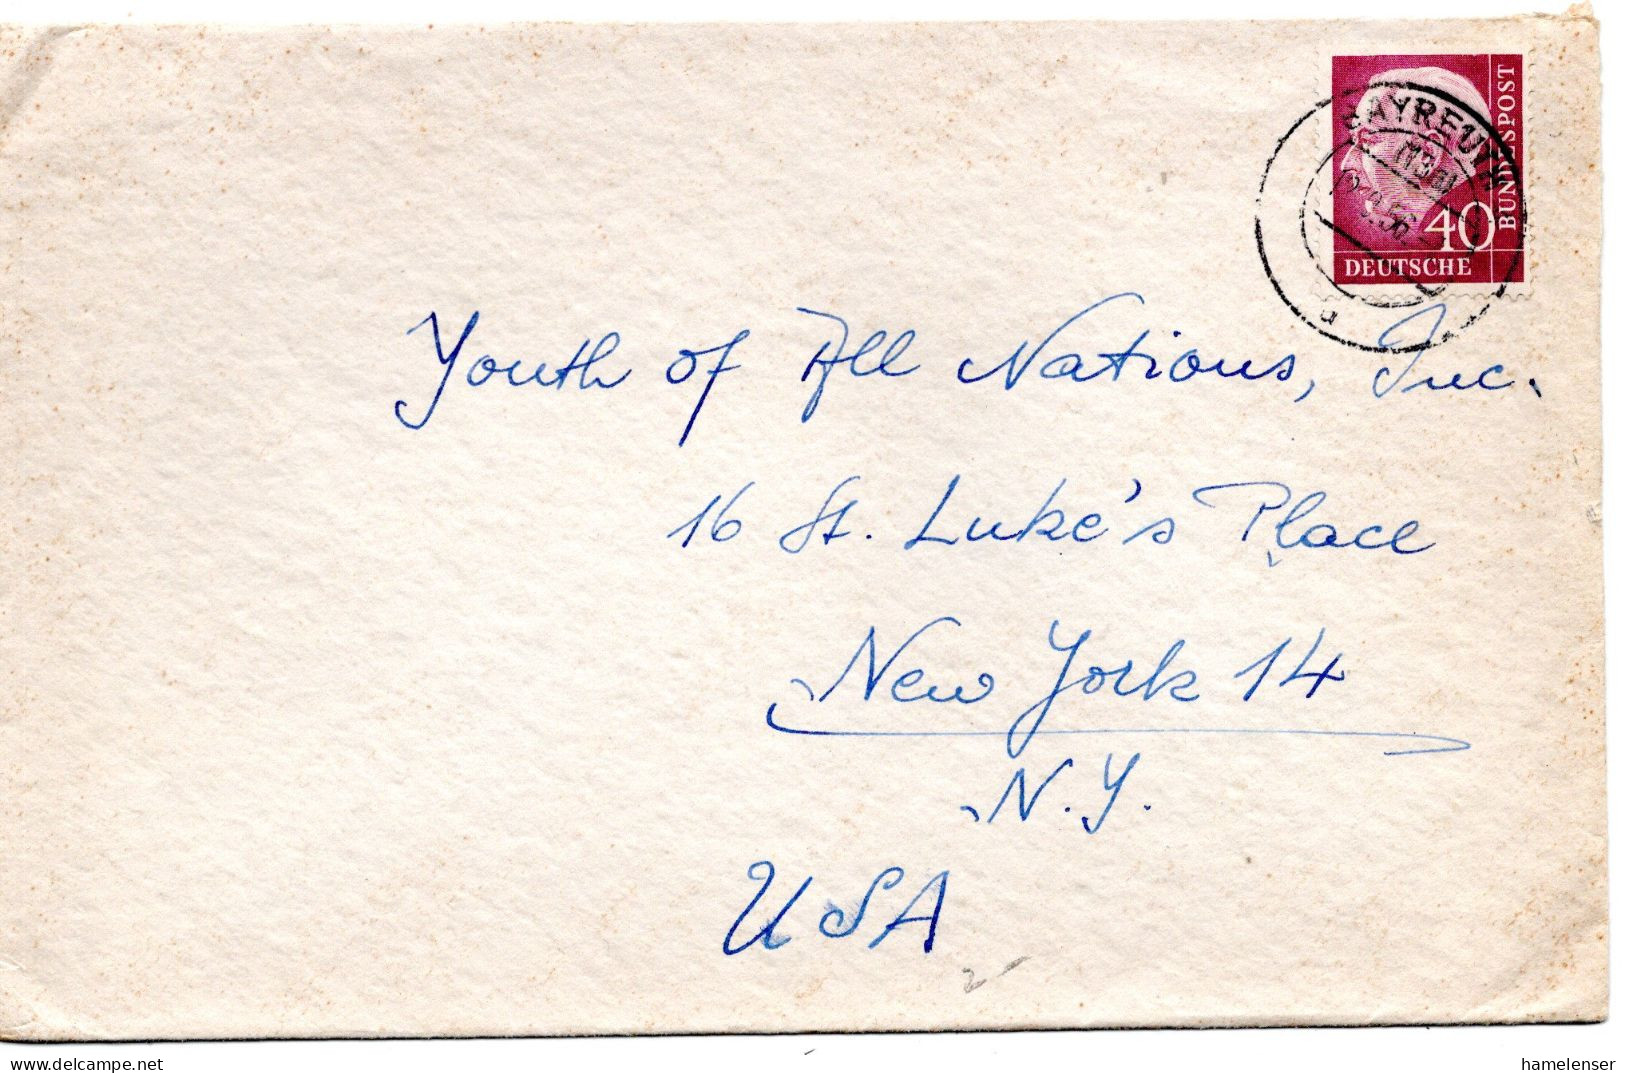 BUNDESPOST
BAYREUTH
(13a)
40
DEUTSCHE
Youth of All Nations, Inc.
16 St. Luke's Place
New York 14
N.Y.
USA
www.delcampe.net
hamelenser